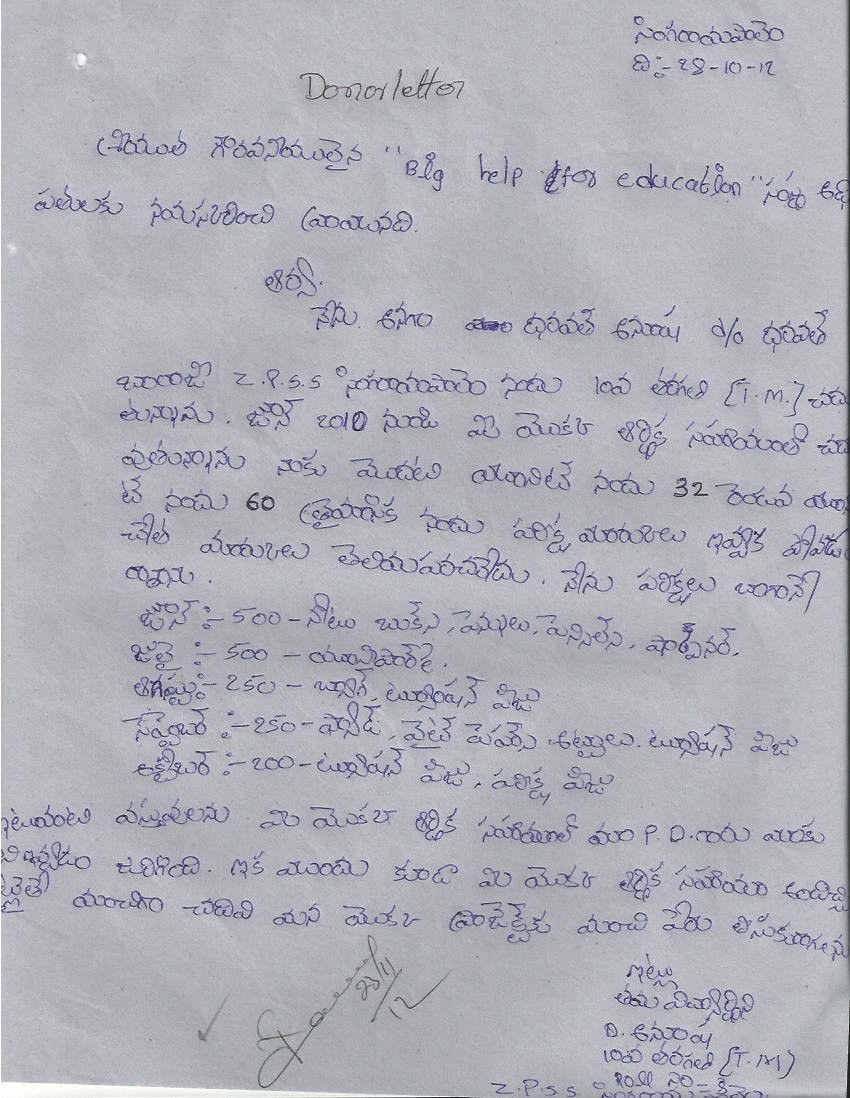 సింగరాయపాలెం
ది :- 28-10-12
Donor letter
శ్రీయుత గౌరవనీయులైన "Big help for education" సంస్థ అధి
పతులకు నమస్కరించి వ్రాయునది.
ఆర్య.
నేను. అనగా ధరావత్ అనూష d/o ధరావత్
బాలాజి Z.P.S.S సింగరాయపాలెం నందు 10వ తరగతి [T.M.] చదు
తున్నాను. జూన్ 2010 నుండి మీ యొక్క ఆర్థిక సహాయంతో చదు
వుతున్నాను నాకు మొదటి యూనిట్ నందు 32 రెండవ యూని
ట్ నందు 60 త్రైమాసిక నందు పరీక్ష మార్కులు ఇవ్వక పోవడం
చేత మార్కులు తెలియపరచలేదు. నేను పరీక్షలు బాగానే
వ్రాశాను.
జూన్ :- 500 - నోటు బుక్స్, పెన్నులు, పెన్సిల్స్, షార్ప్‌నర్.
జులై :- 500 - యూనిఫార్మ్.
ఆగష్టు :- 250 - బ్యాగ్, ట్యూషన్ ఫీజు
సెప్టెంబర్ :- 250 - ప్యాడ్, వైట్ పేపర్స్ అట్టలు. ట్యూషన్ ఫీజు
అక్టోబర్ :- 200 - ట్యూషన్ ఫీజు, పరీక్ష ఫీజు
ఇటువంటి వస్తువులను మీ యొక్క ఆర్థిక సహాయంతో మా P.D. గారు మాకు
ఇవ్వడం జరిగింది. ఇక ముందు కూడా మీ యొక్క ఆర్థిక సహాయం అందిచ్చి
నట్లైతే మంచిగా చదివి మన యొక్క ప్రాజెక్ట్‌కు మంచి పేరు తీసుకురాగలను
ఇట్లు
తమ విద్యార్థిని
D. అనూష
10వ తరగతి [T.M]
Roll no-
Z.P.S.S.
23/11/12